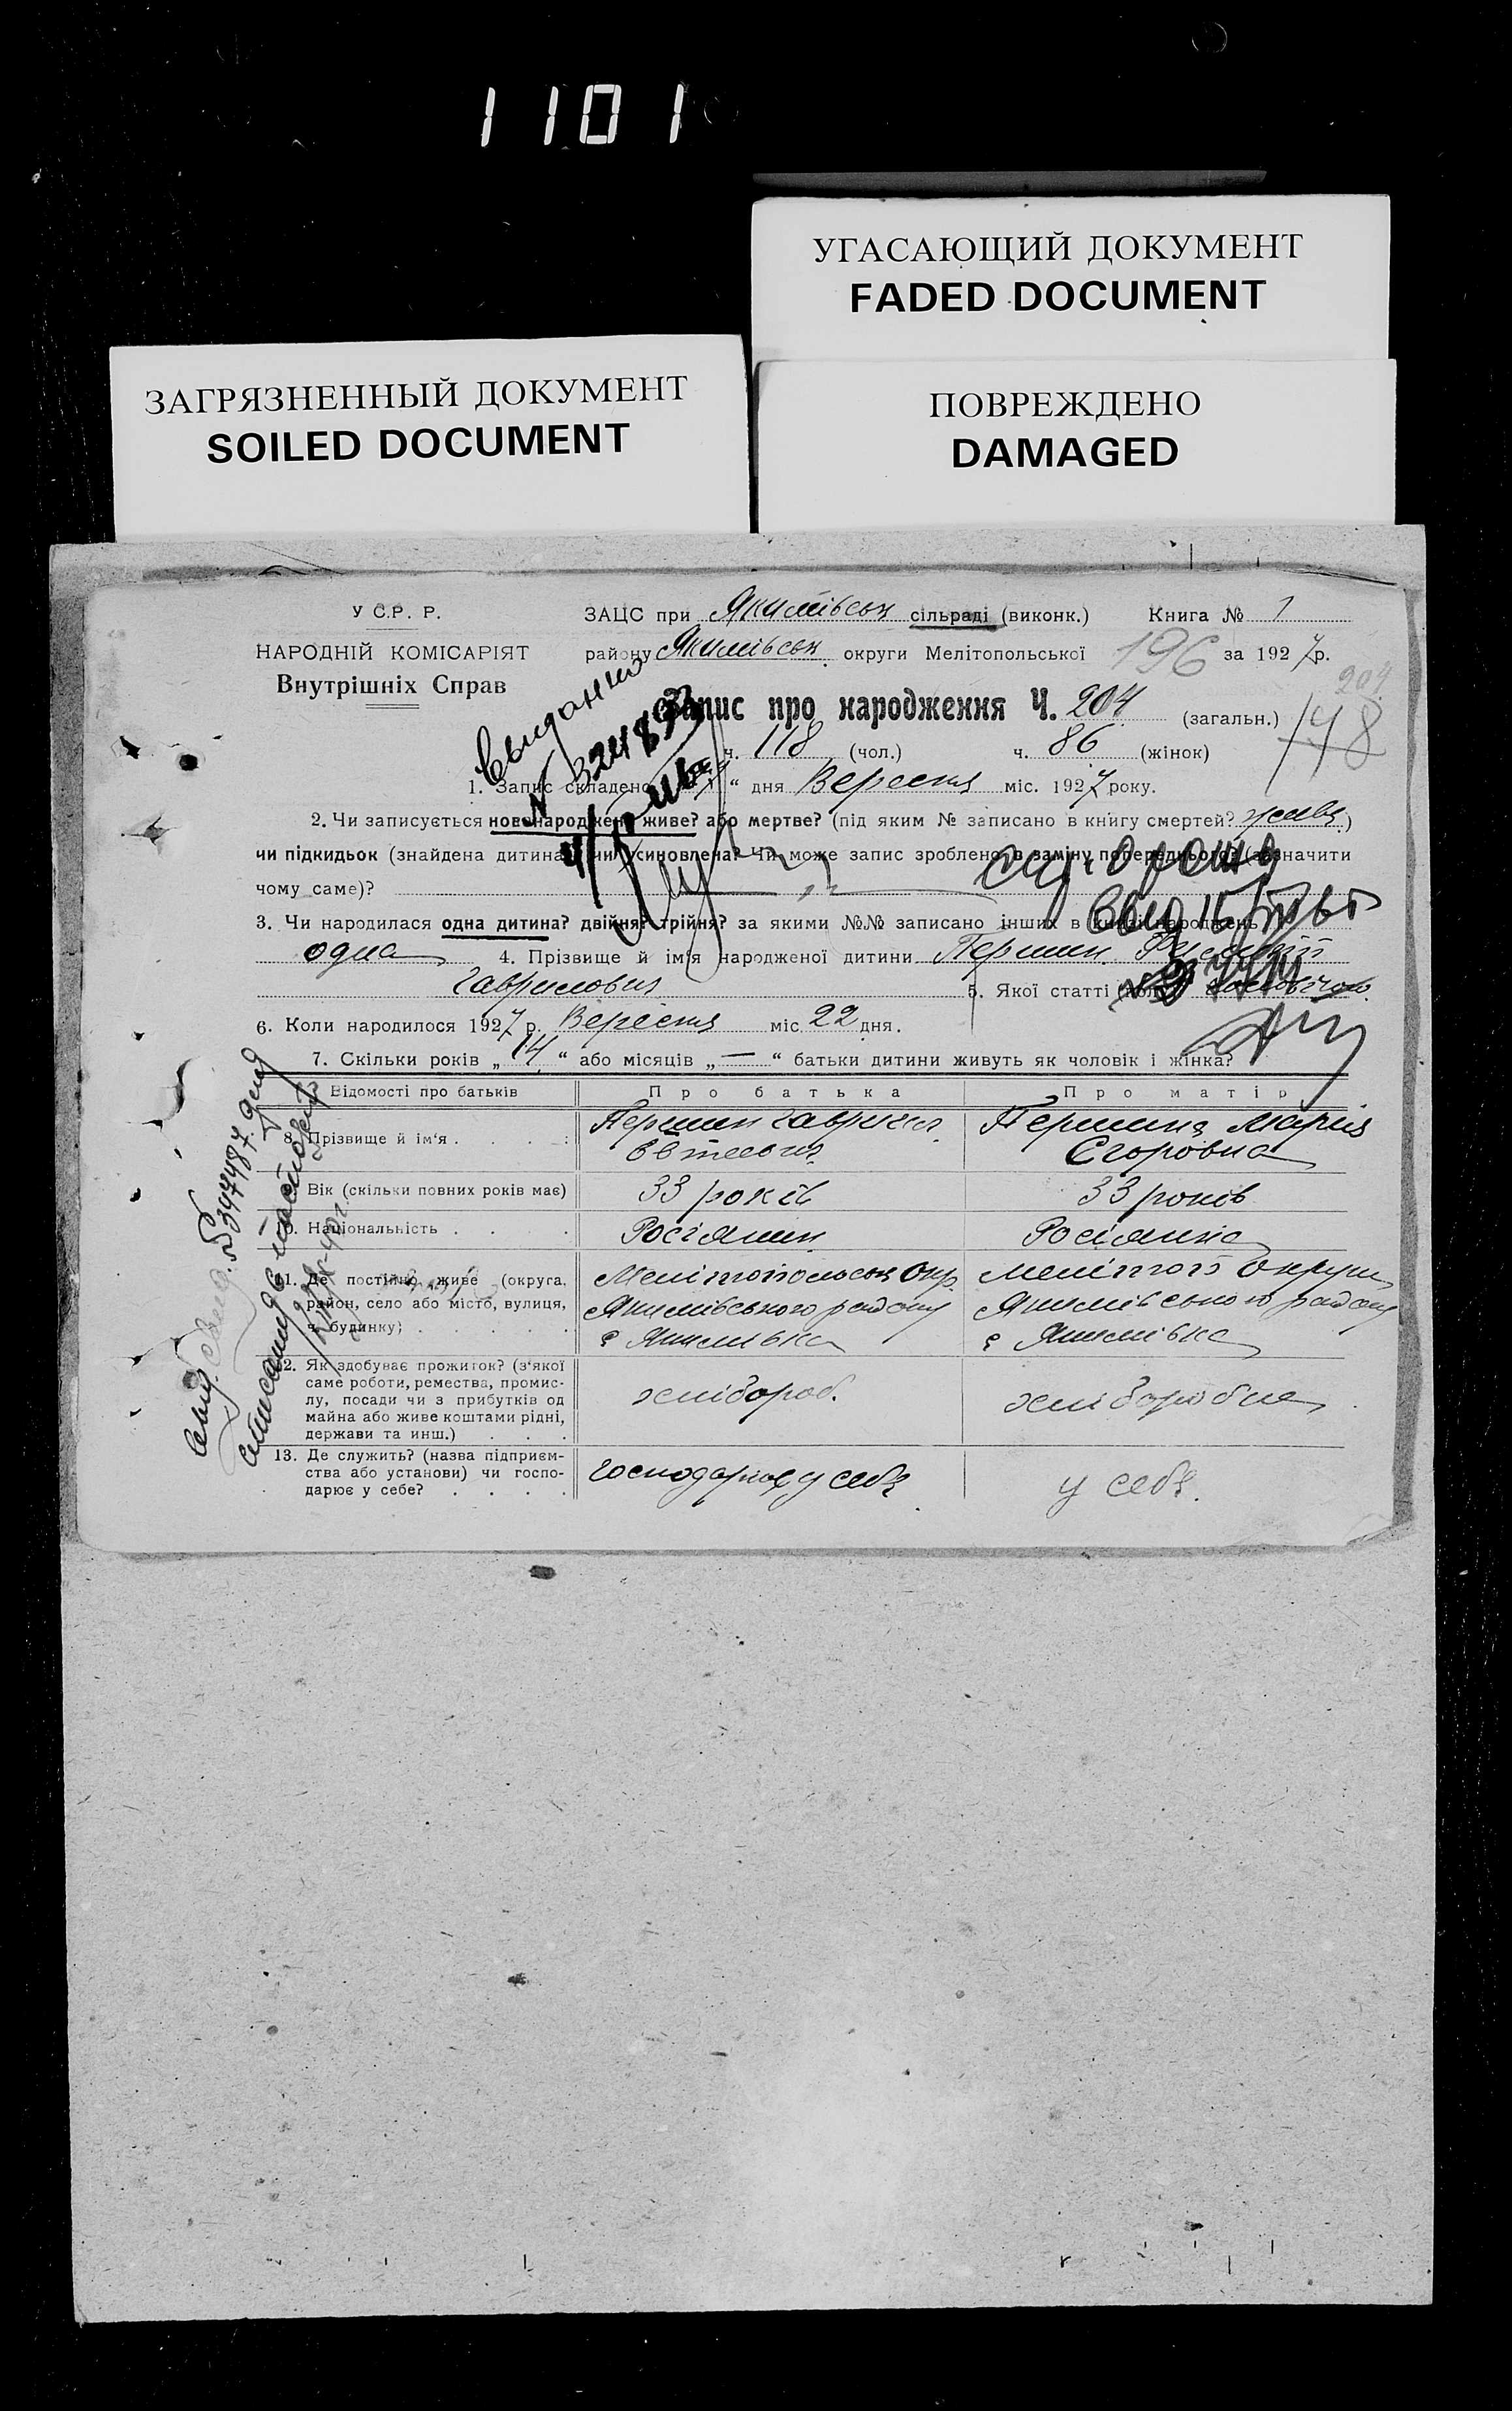 1101
УГАСАЮЩИЙ ДОКУМЕНТ
FADED DOCUMENT
ЗАГРЯЗНЕННЫЙ ДОКУМЕНТ
SOILED DOCUMENT
ПОВРЕЖДЕНО
DAMAGED
У С.Р. Р.
НАРОДНІЙ КОМІСАРІЯТ
Внутрішніх Справ
ЗАЦС при Якимівськ сільраді (виконк.) Книга № 1
району Якимівськ округи Мелітопольської 196 за 1927 р.
204
Запис про народження Ч. 204 (загальн.) 148
ч. 118 (чол.) ч. 86 (жінок)
1. Запис складено " дня Вересня міс. 1927 року.
2. Чи записується новонароджене живе? або мертве? (під яким № записано в книгу смертей? живе)
чи підкидьок (знайдена дитина) чи усиновлена? Чи може запис зроблено в заміну попереднього? (зазначити
чому саме)?
3. Чи народилася одна дитина? двійня? трійня? за якими №№ записано інших в книзі народжень
одна 4. Прізвище й ім'я народженої дитини Першин
Гаврилович 5. Якої статті
6. Коли народилося 1927 р. Вересня міс. 22 дня.
7. Скільки років „ 14 " або місяців „ — " батьки дитини живуть як чоловік і жінка?
Відомості про батьків Про батька Про матір
8. Прізвище й ім'я . . . . Першин Гаврило Першина Марія
Єгоровна
Вік (скільки повних років має) 33 років 33 років
Національність . . . . Росіянин Росіянка
11. Де постійно живе (округа, Мелітопольськ Окр. Мелітоп Округи
район, село або місто, вулиця, Якимівського району Якимівського району
ч. будинку) . . . . . с Якимівка с Якимівка
12. Як здобуває прожиток? (з'якої
саме роботи, ремества, промис-
лу, посади чи з прибутків од хлібороб. хліборобка
майна або живе коштами рідні,
держави та инш.) . . .
13. Де служить? (назва підприєм-
ства або установи) чи госпо- господарює у себе у себе.
дарює у себе? . . . .